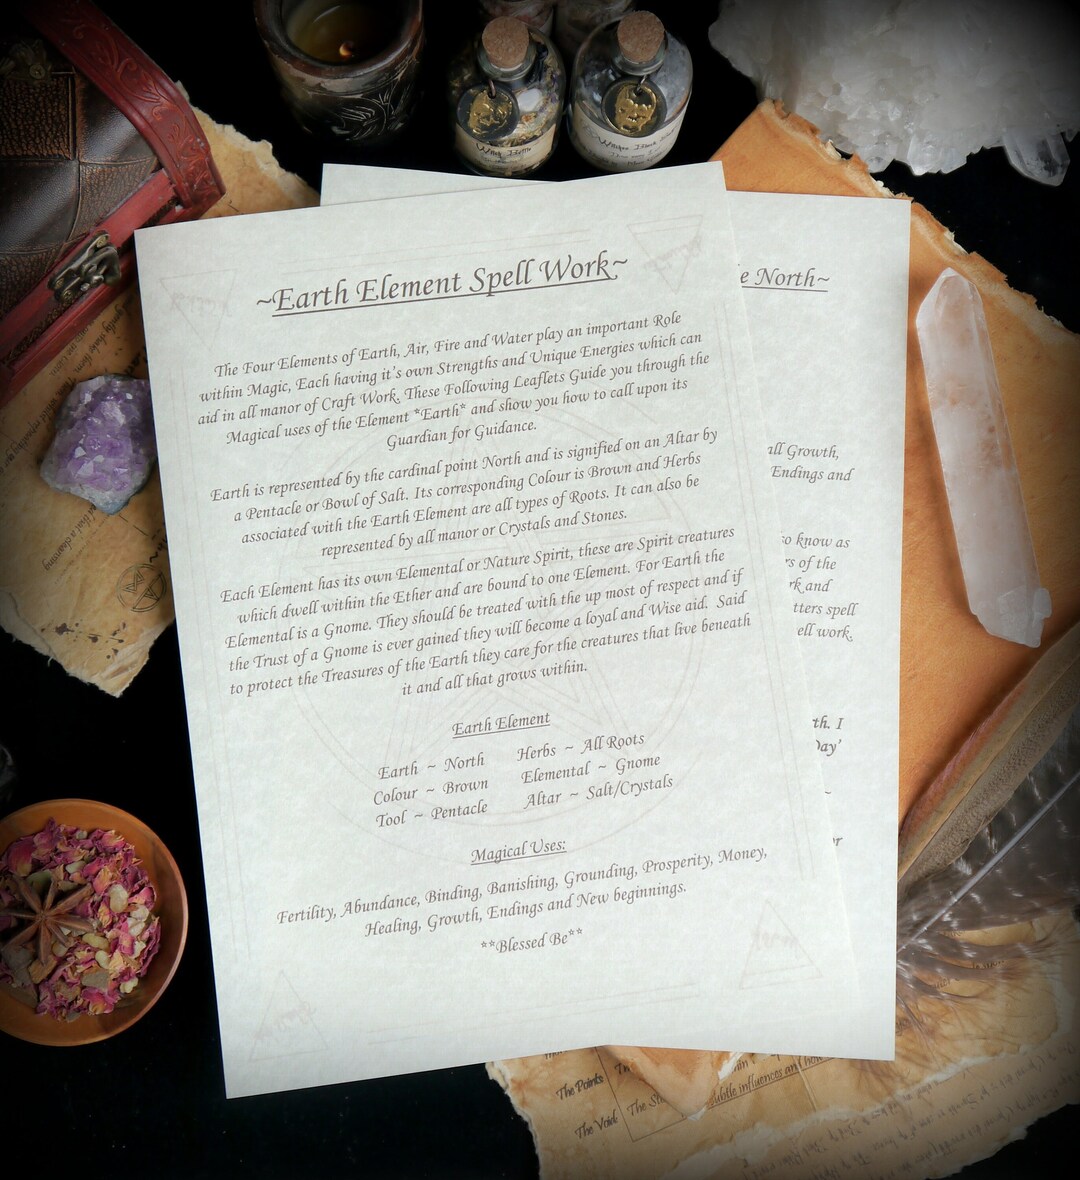 ~Earth Element Spell Work~
The Four Elements of Earth, Air, Fire and Water play an important Role
within Magic, Each having it's own Strengths and Unique Energies which can
aid in all manor of Craft Work. These Following Leaflets Guide you through the
Magical uses of the Element *Earth* and show you how to call upon its
Guardian for Guidance.
Earth is represented by the cardinal point North and is signified on an Altar by
a Pentacle or Bowl of Salt. Its corresponding Colour is Brown and Herbs
associated with the Earth Element are all types of Roots. It can also be
represented by all manor or Crystals and Stones.
Each Element has its own Elemental or Nature Spirit, these are Spirit creatures
which dwell within the Ether and are bound to one Element. For Earth the
Elemental is a Gnome. They should be treated with the up most of respect and if
the Trust of a Gnome is ever gained they will become a loyal and Wise aid. Said
to protect the Treasures of the Earth they care for the creatures that live beneath
it and all that grows within.
Earth Element
Earth ~ North Herbs ~ All Roots
Colour ~ Brown Elemental ~ Gnome
Tool ~ Pentacle Altar ~ Salt/Crystals
Magical Uses:
Fertility, Abundance, Binding, Banishing, Grounding, Prosperity, Money,
Healing, Growth, Endings and New beginnings.
**Blessed Be**
e North~
all Growth,
Endings and
so know as
rs of the
rk and
tters spell
ell work.
th. I
Day'
~
or
Witch
Witches Black
The Points:
The Void:
subtle influences and how